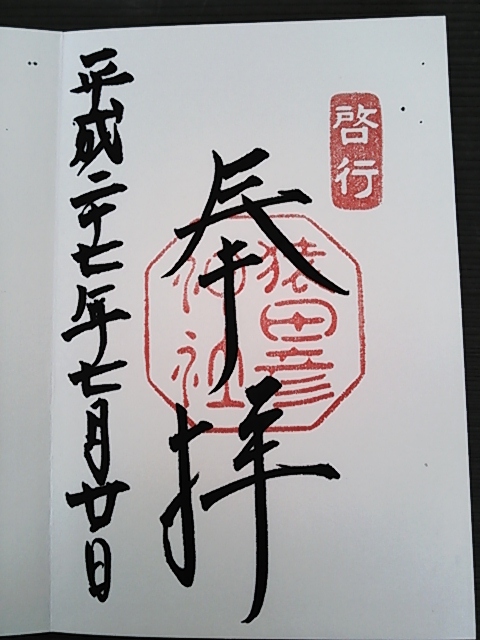 啓行
奉拝
猿田彦
神社
平成二十七年七月廿日